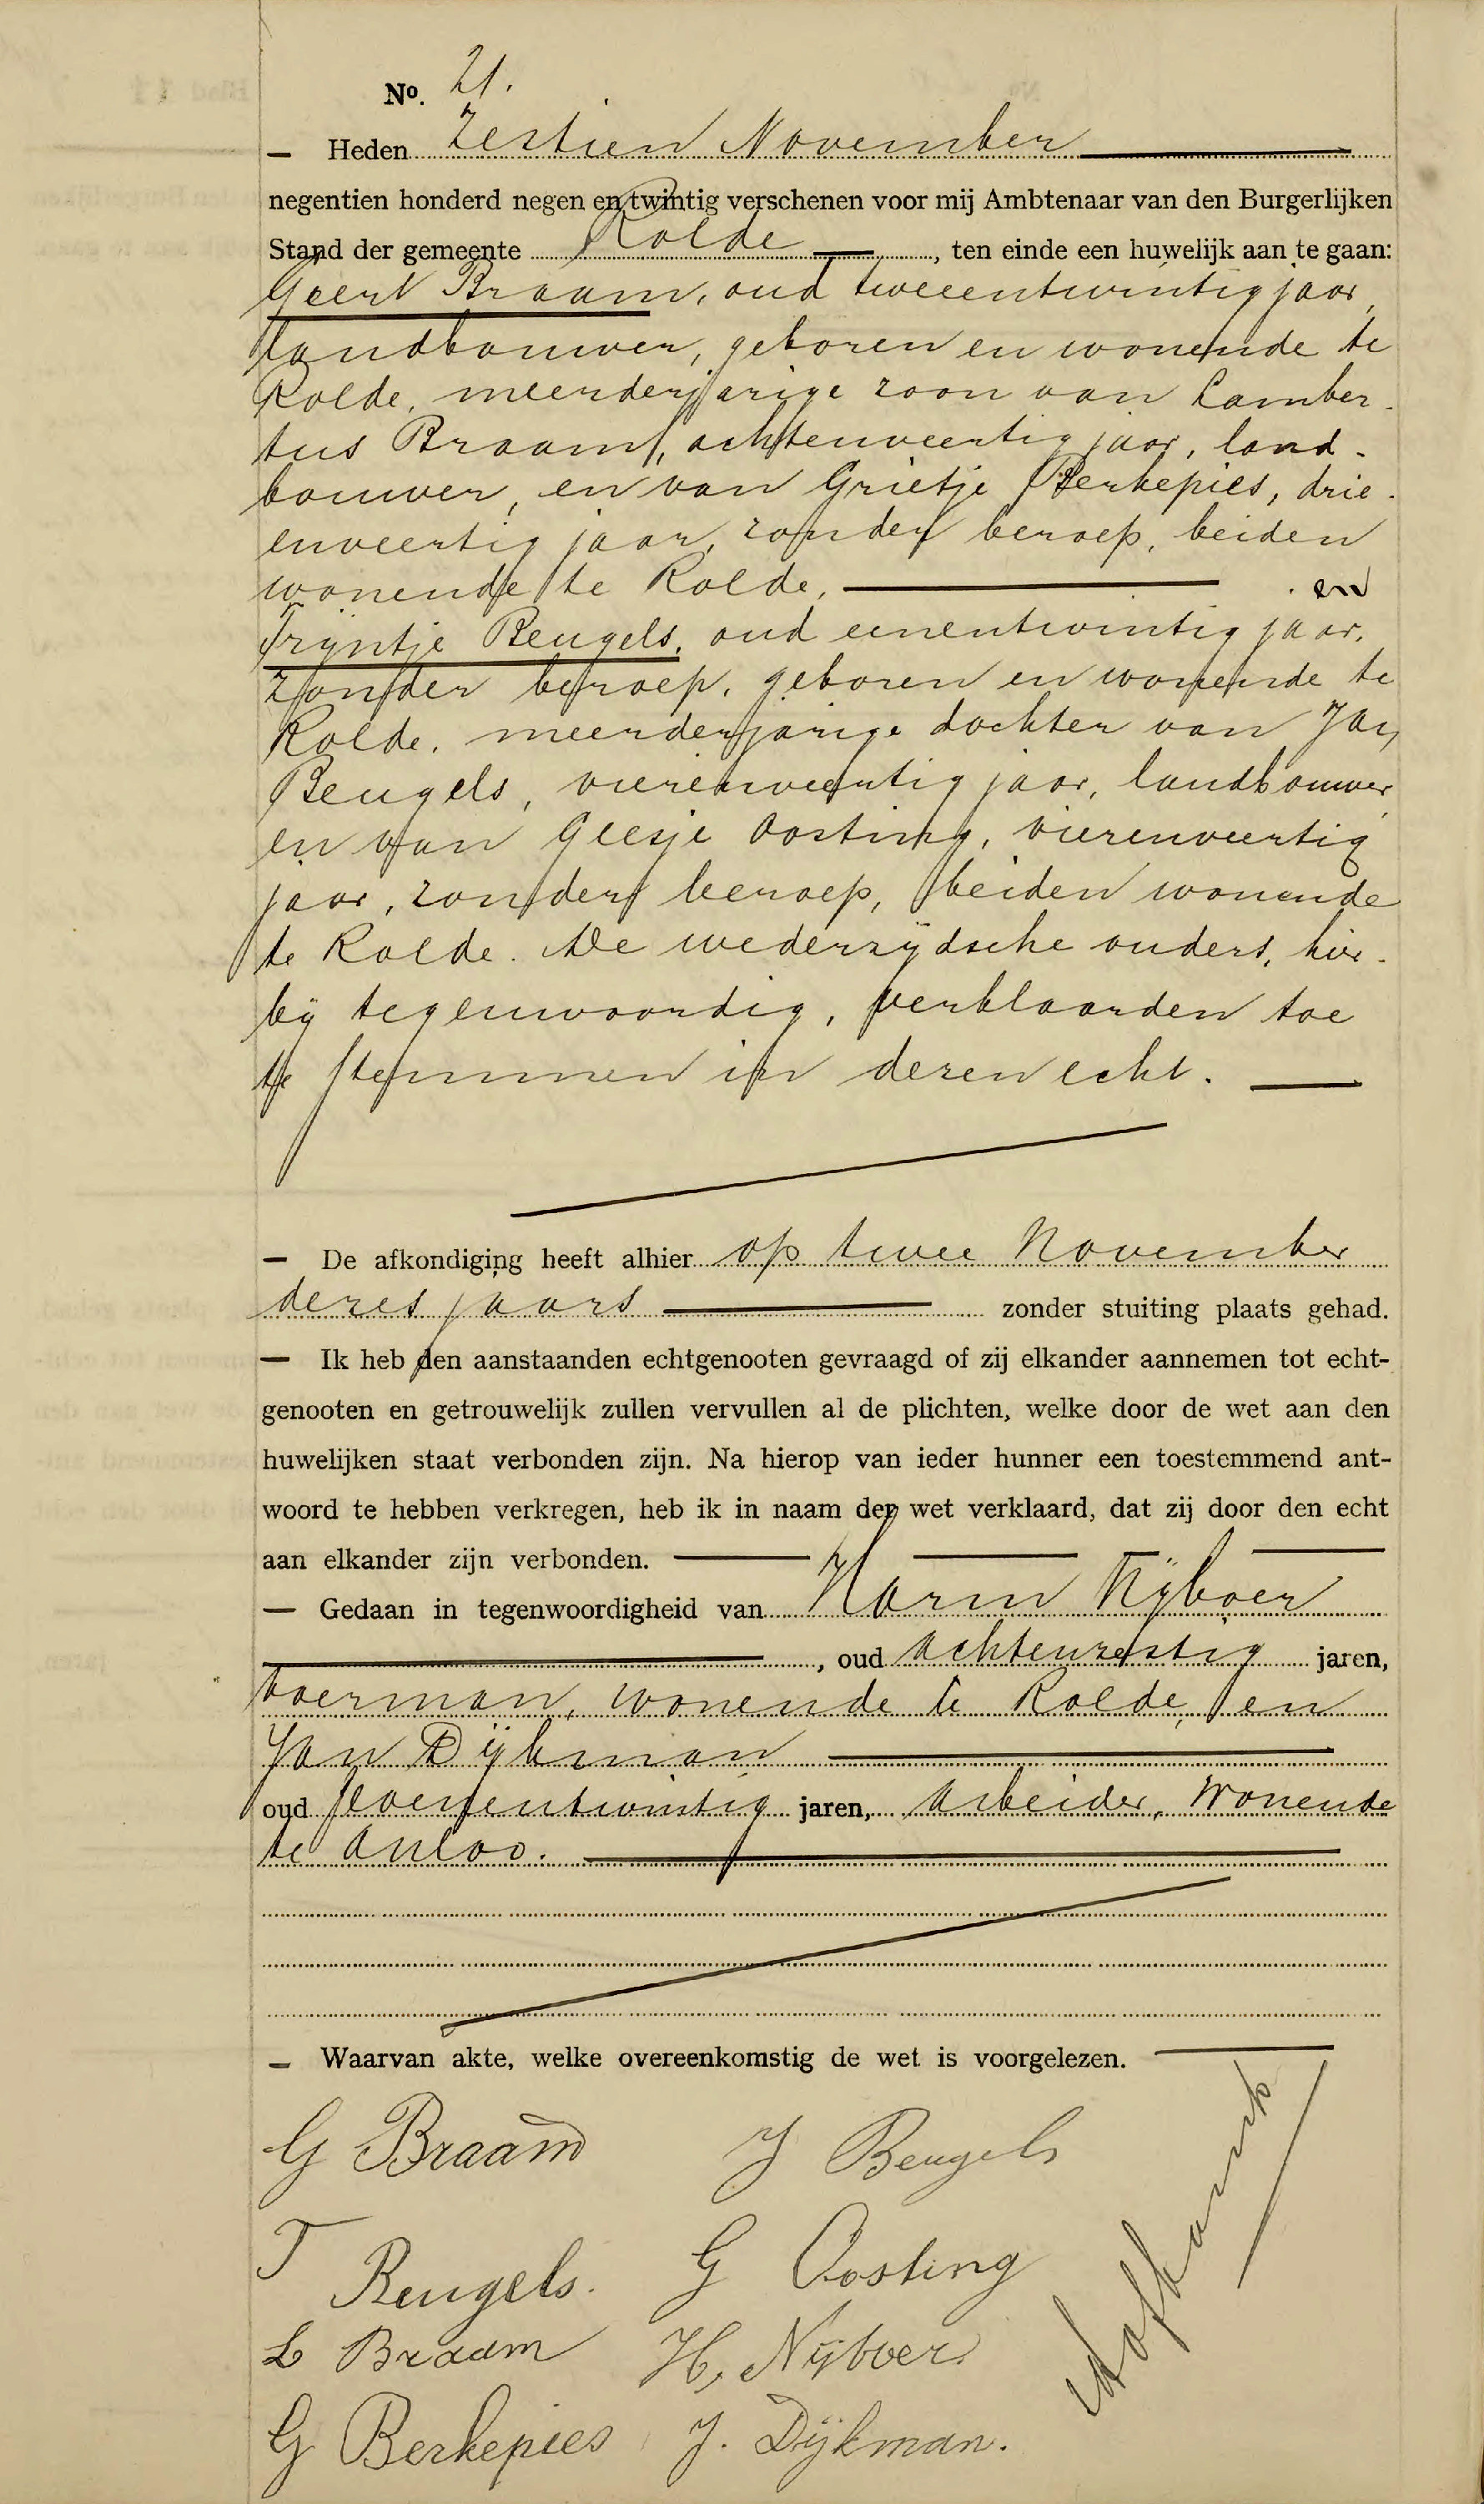 No. 21.
— Heden Zestien November
negentien honderd negen en twintig verschenen voor mij Ambtenaar van den Burgerlijken
Stand der gemeente Rolde, ten einde een huwelijk aan te gaan:
Geert Braam, oud tweeentwintig jaar,
landbouwer, geboren en wonende te
Rolde, meerderjarige zoon van Lamber-
tus Braam, achtenveertig jaar, land-
bouwer, en van Grietje Berkepies, drie-
enveertig jaar, zonder beroep, beiden
wonende te Rolde, en
Trijntje Beugels, oud eenentwintig jaar,
zonder beroep, geboren en wonende te
Rolde, meerderjarige dochter van Jan
Beugels, vierenveertig jaar, landbouwer
en van Geesje Oosting, vierenveertig
jaar, zonder beroep, beiden wonende
te Rolde. De wederzijdsche ouders, hier-
bij tegenwoordig, verklaarden toe
te stemmen in dezen echt.
— De afkondiging heeft alhier op twee November
dezes jaars zonder stuiting plaats gehad.
— Ik heb den aanstaanden echtgenooten gevraagd of zij elkander aannemen tot echt-
genooten en getrouwelijk zullen vervullen al de plichten, welke door de wet aan den
huwelijken staat verbonden zijn. Na hierop van ieder hunner een toestemmend ant-
woord te hebben verkregen, heb ik in naam der wet verklaard, dat zij door den echt
aan elkander zijn verbonden.
— Gedaan in tegenwoordigheid van Harm Nijboer
, oud achtenzestig jaren,
voerman, wonende te Rolde, en
Jan Dijkman
oud zevenentwintig jaren, arbeider, wonende
te Anloo.
— Waarvan akte, welke overeenkomstig de wet is voorgelezen.
G Braam J Beugels
T Beugels. G Oosting
L Braam H, Nijboer
G Berkepies J. Dijkman.